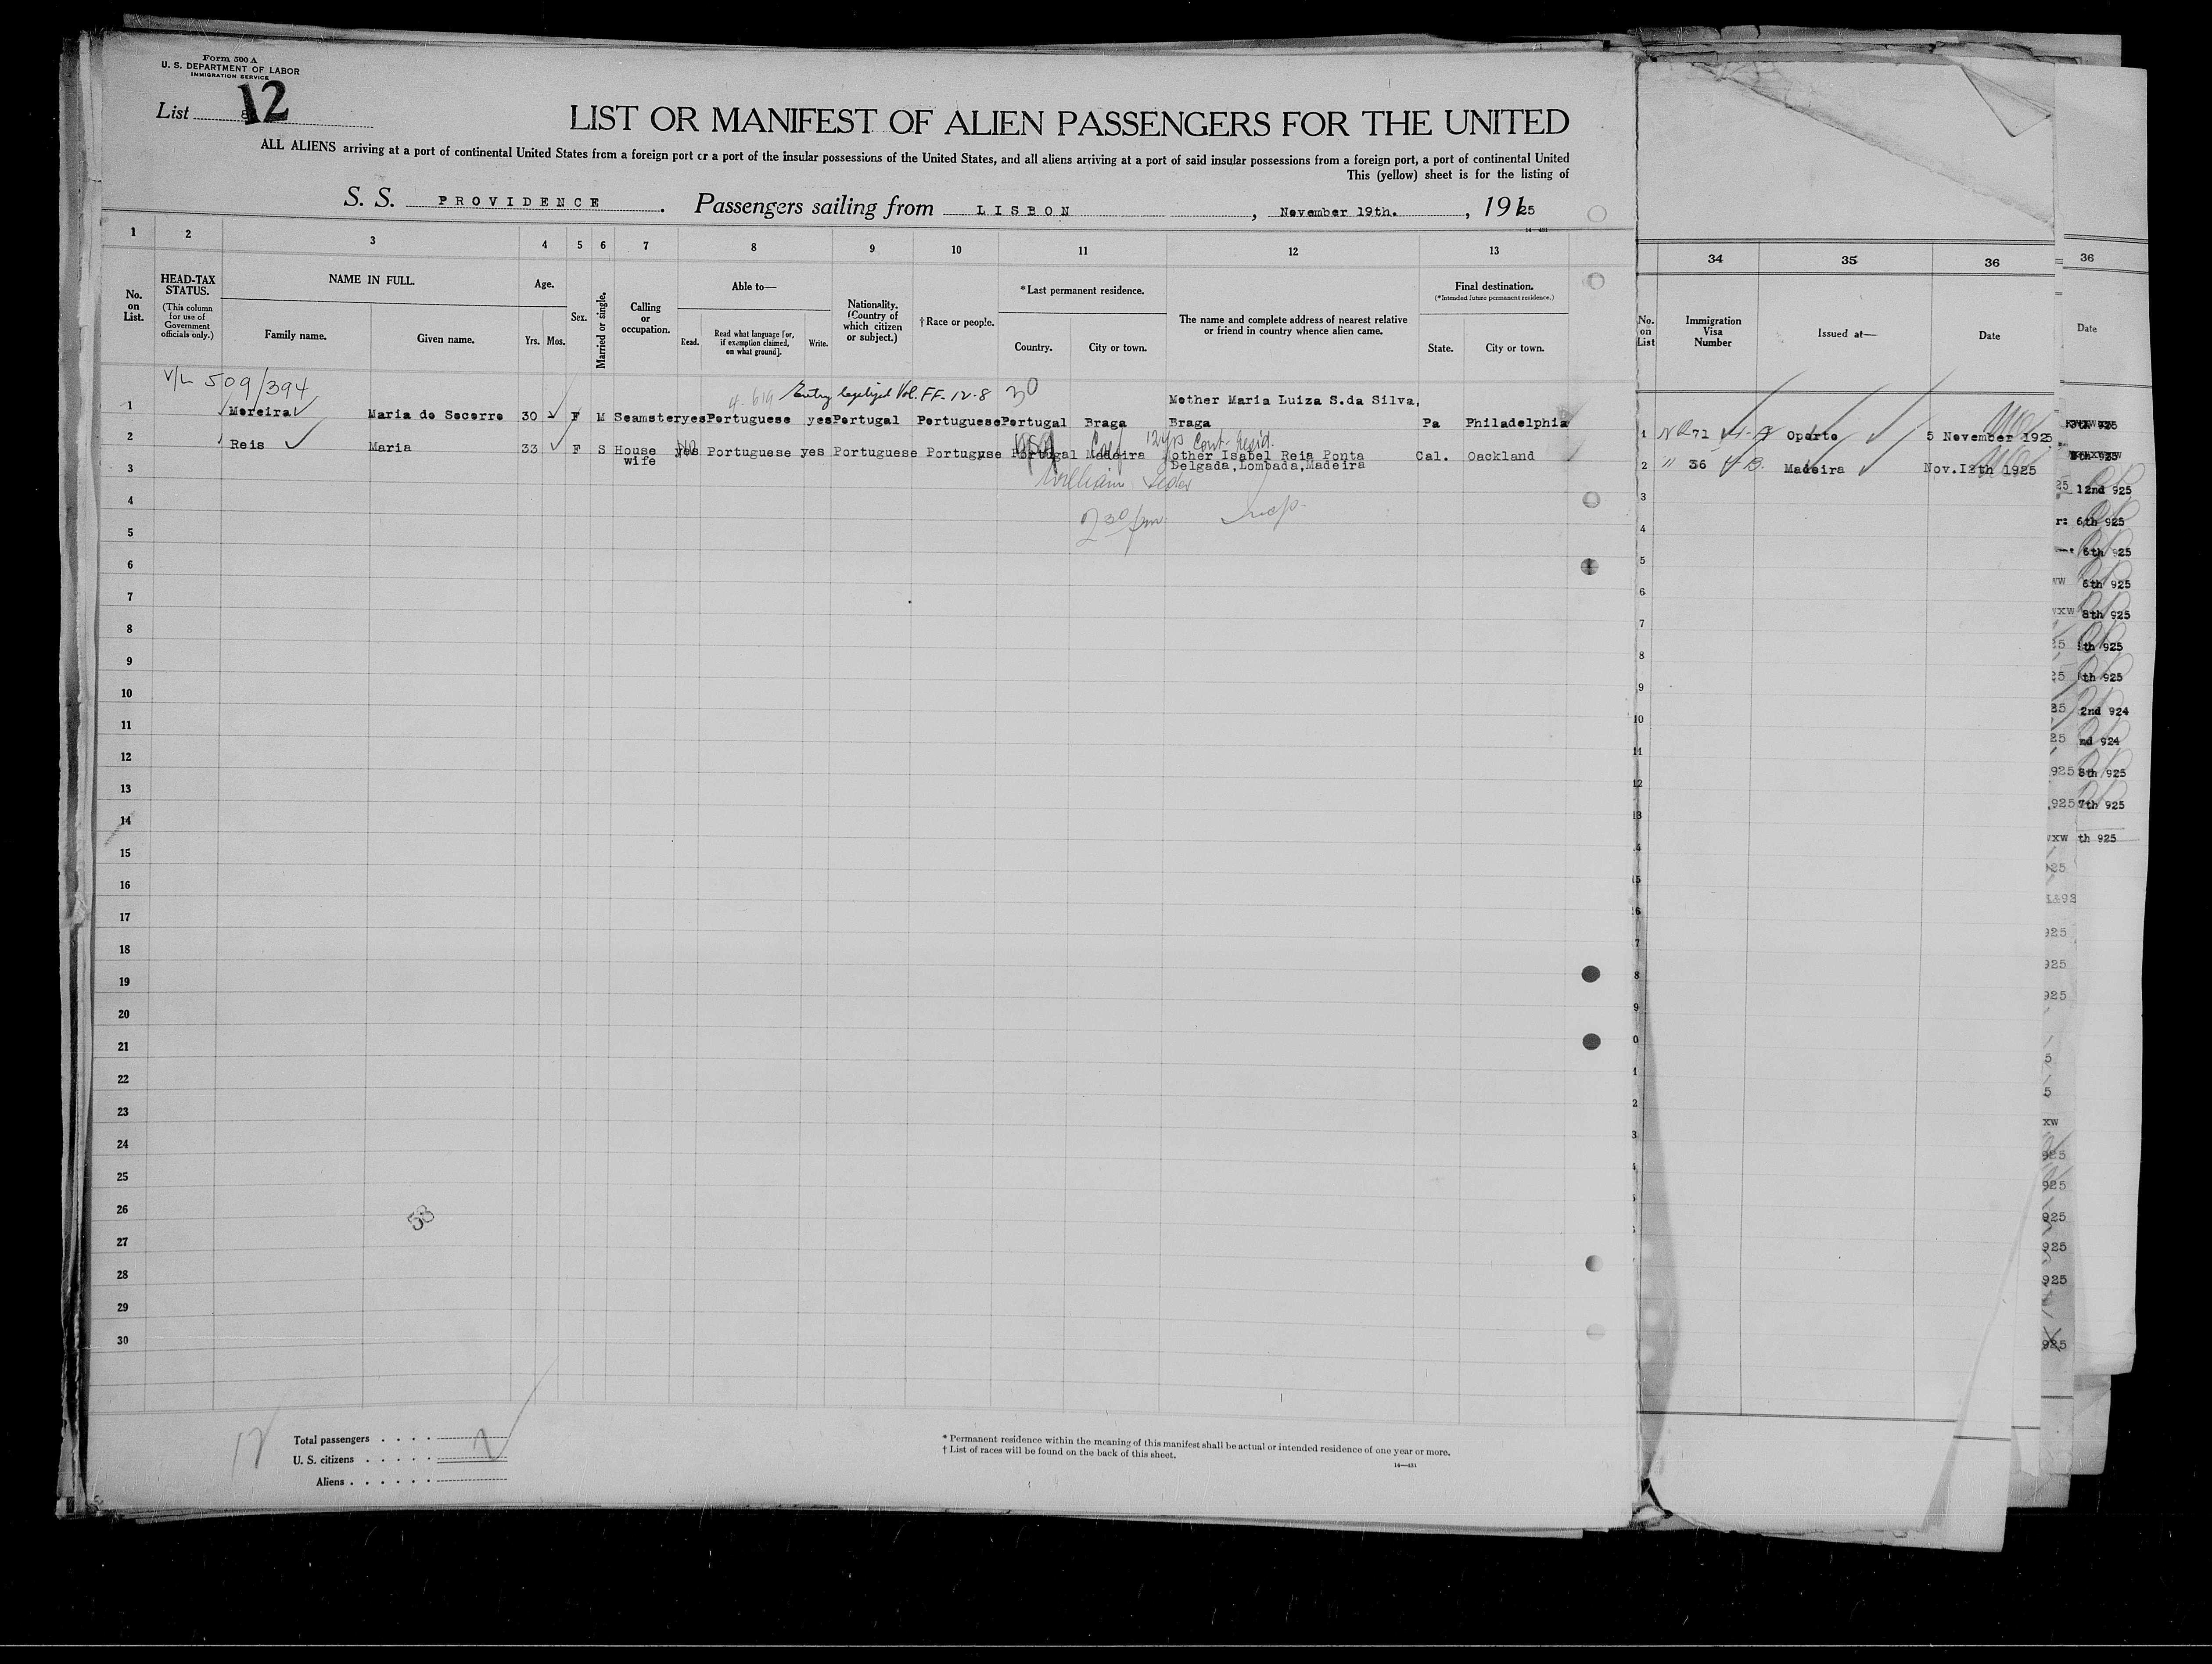 Form 500 A
U. S. DEPARTMENT OF LABOR
IMMIGRATION SERVICE
List 12
LIST OR MANIFEST OF ALIEN PASSENGERS FOR THE UNITED
ALL ALIENS arriving at a port of continental United States from a foreign port or a port of the insular possessions of the United States, and all aliens arriving at a port of said insular possessions from a foreign port, a port of continental United
This (yellow) sheet is for the listing of
S. S. PROVIDENCE. Passengers sailing from LISBON, November 19th., 1925
14—431
1 2 3 4 5 6 7 8 9 10 11 12 13
No. on List.
HEAD-TAX STATUS.
(This column for use of Government officials only.)
NAME IN FULL.
Family name. Given name.
Age.
Yrs. Mos.
Sex.
Married or single.
Calling or occupation.
Able to—
Read. Read what language [or, if exemption claimed, on what ground]. Write.
Nationality. (Country of which citizen or subject.)
†Race or people.
*Last permanent residence.
Country. City or town.
The name and complete address of nearest relative or friend in country whence alien came.
Final destination.
(*Intended future permanent residence.)
State. City or town.
34 35 36
No. on List
Immigration Visa Number
Issued at—
Date
36
Date
V/L 509/394
4-619 Entry legalized Vol. FF-12-8 30
Mother Maria Luiza S.da Silva,
1 Moreira Maria do Socorro 30 F M Seamster yes Portuguese yes Portugal Portuguese Portugal Braga Braga Pa Philadelphia
2 Reis Maria 33 F S House wife yes Portuguese yes Portuguese Portuguse Portugal Madeira other Isabel Reis Ponta Cal. Oackland
Delgada,Lombada,Madeira
12 yrs Cont. Resid.
William
2 30 pm.
1 71 Oporto 5 November 1925
2 " 36 Madeira Nov.12th 1925
3
4
5
6
7
8
9
10
11
12
13
14
15
16
17
18
19
20
21
22
23
24
25
26
27
28
29
30
12nd 925
6th 925
6th 925
6th 925
8th 925
th 925
th 925
2nd 924
nd 924
8th 925
7th 925
th 925
58
12
Total passengers . . . . 2
U. S. citizens . . . . .
Aliens . . . . . .
* Permanent residence within the meaning of this manifest shall be actual or intended residence of one year or more.
† List of races will be found on the back of this sheet.
14—431